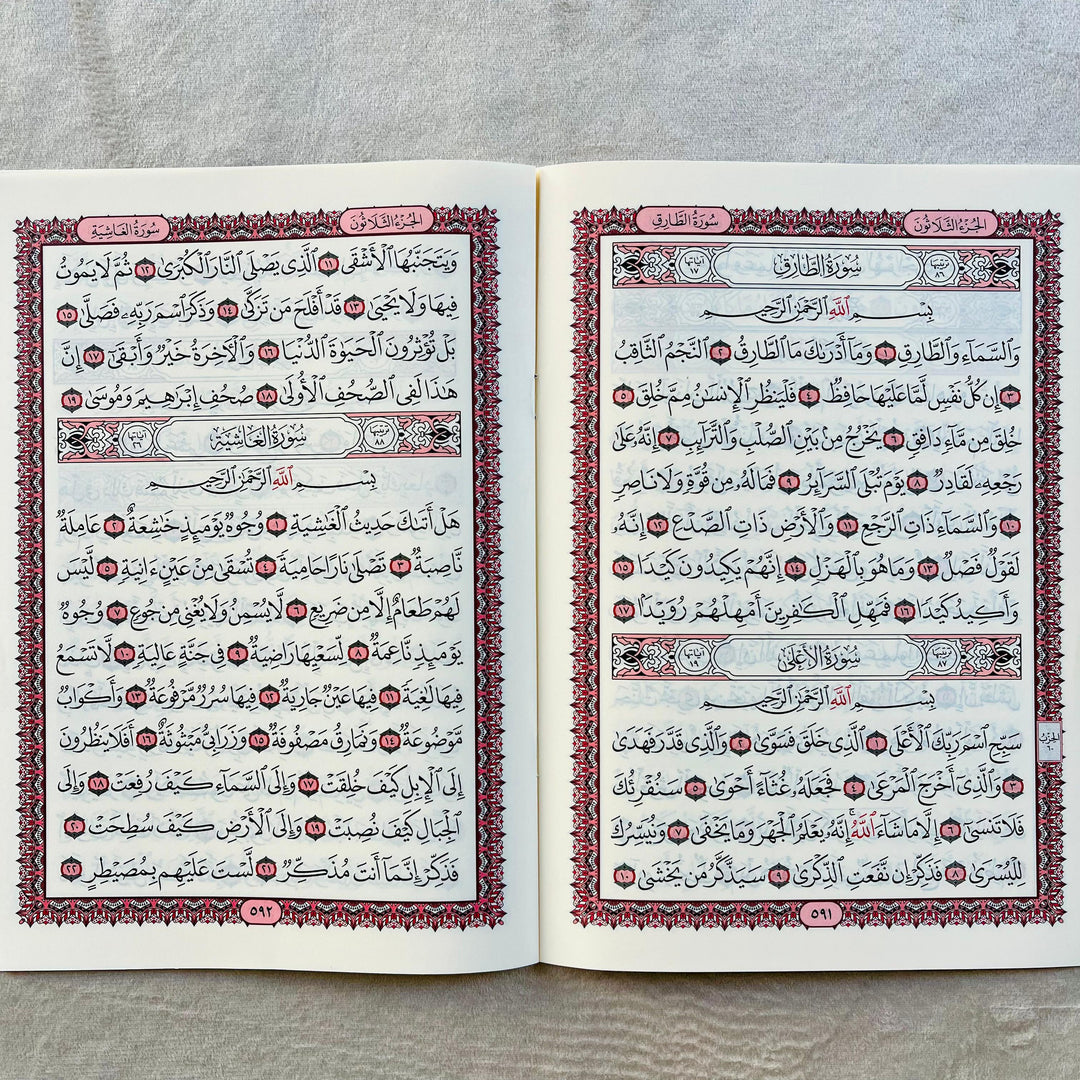 الجُزْءُ الثَّلَاثُونَ
سُورَةُ الطَّارِقِ
تَرْتِيبُهَا ٨٦ سُورَةُ الطَّارِقِ آيَاتُهَا ١٧
بِسْمِ اللَّهِ الرَّحْمَٰنِ الرَّحِيمِ
وَٱلسَّمَآءِ وَٱلطَّارِقِ ١ وَمَآ أَدْرَىٰكَ مَا ٱلطَّارِقُ ٢ ٱلنَّجْمُ ٱلثَّاقِبُ
٣ إِن كُلُّ نَفْسٍ لَّمَّا عَلَيْهَا حَافِظٌ ٤ فَلْيَنظُرِ ٱلْإِنسَٰنُ مِمَّ خُلِقَ ٥
خُلِقَ مِن مَّآءٍ دَافِقٍ ٦ يَخْرُجُ مِنۢ بَيْنِ ٱلصُّلْبِ وَٱلتَّرَآئِبِ ٧ إِنَّهُۥ عَلَىٰ
رَجْعِهِۦ لَقَادِرٌ ٨ يَوْمَ تُبْلَى ٱلسَّرَآئِرُ ٩ فَمَا لَهُۥ مِن قُوَّةٍ وَلَا نَاصِرٍ
١٠ وَٱلسَّمَآءِ ذَاتِ ٱلرَّجْعِ ١١ وَٱلْأَرْضِ ذَاتِ ٱلصَّدْعِ ١٢ إِنَّهُۥ
لَقَوْلٌ فَصْلٌ ١٣ وَمَا هُوَ بِٱلْهَزْلِ ١٤ إِنَّهُمْ يَكِيدُونَ كَيْدًا ١٥
وَأَكِيدُ كَيْدًا ١٦ فَمَهِّلِ ٱلْكَٰفِرِينَ أَمْهِلْهُمْ رُوَيْدًۢا ١٧
تَرْتِيبُهَا ٨٧ سُورَةُ الأَعْلَىٰ آيَاتُهَا ١٩
بِسْمِ اللَّهِ الرَّحْمَٰنِ الرَّحِيمِ
سَبِّحِ ٱسْمَ رَبِّكَ ٱلْأَعْلَى ١ ٱلَّذِى خَلَقَ فَسَوَّىٰ ٢ وَٱلَّذِى قَدَّرَ فَهَدَىٰ
٣ وَٱلَّذِىٓ أَخْرَجَ ٱلْمَرْعَىٰ ٤ فَجَعَلَهُۥ غُثَآءً أَحْوَىٰ ٥ سَنُقْرِئُكَ
فَلَا تَنسَىٰٓ ٦ إِلَّا مَا شَآءَ ٱللَّهُ ۚ إِنَّهُۥ يَعْلَمُ ٱلْجَهْرَ وَمَا يَخْفَىٰ ٧ وَنُيَسِّرُكَ
لِلْيُسْرَىٰ ٨ فَذَكِّرْ إِن نَّفَعَتِ ٱلذِّكْرَىٰ ٩ سَيَذَّكَّرُ مَن يَخْشَىٰ ١٠
الحِزْب
٥٩١
الجُزْءُ الثَّلَاثُونَ
سُورَةُ الغَاشِيَةِ
وَيَتَجَنَّبُهَا ٱلْأَشْقَى ١١ ٱلَّذِى يَصْلَى ٱلنَّارَ ٱلْكُبْرَىٰ ١٢ ثُمَّ لَا يَمُوتُ
فِيهَا وَلَا يَحْيَىٰ ١٣ قَدْ أَفْلَحَ مَن تَزَكَّىٰ ١٤ وَذَكَرَ ٱسْمَ رَبِّهِۦ فَصَلَّىٰ ١٥
بَلْ تُؤْثِرُونَ ٱلْحَيَوٰةَ ٱلدُّنْيَا ١٦ وَٱلْءَاخِرَةُ خَيْرٌ وَأَبْقَىٰٓ ١٧ إِنَّ
هَٰذَا لَفِى ٱلصُّحُفِ ٱلْأُولَىٰ ١٨ صُحُفِ إِبْرَٰهِيمَ وَمُوسَىٰ ١٩
تَرْتِيبُهَا ٨٨ سُورَةُ الغَاشِيَةِ آيَاتُهَا ٢٦
بِسْمِ اللَّهِ الرَّحْمَٰنِ الرَّحِيمِ
هَلْ أَتَىٰكَ حَدِيثُ ٱلْغَٰشِيَةِ ١ وُجُوهٌ يَوْمَئِذٍ خَٰشِعَةٌ ٢ عَامِلَةٌ
نَّاصِبَةٌ ٣ تَصْلَىٰ نَارًا حَامِيَةً ٤ تُسْقَىٰ مِنْ عَيْنٍ ءَانِيَةٍ ٥ لَّيْسَ
لَهُمْ طَعَامٌ إِلَّا مِن ضَرِيعٍ ٦ لَّا يُسْمِنُ وَلَا يُغْنِى مِن جُوعٍ ٧ وُجُوهٌ
يَوْمَئِذٍ نَّاعِمَةٌ ٨ لِّسَعْيِهَا رَاضِيَةٌ ٩ فِى جَنَّةٍ عَالِيَةٍ ١٠ لَّا تَسْمَعُ
فِيهَا لَٰغِيَةً ١١ فِيهَا عَيْنٌ جَارِيَةٌ ١٢ فِيهَا سُرُرٌ مَّرْفُوعَةٌ ١٣ وَأَكْوَابٌ
مَّوْضُوعَةٌ ١٤ وَنَمَارِقُ مَصْفُوفَةٌ ١٥ وَزَرَابِىُّ مَبْثُوثَةٌ ١٦ أَفَلَا يَنظُرُونَ
إِلَى ٱلْإِبِلِ كَيْفَ خُلِقَتْ ١٧ وَإِلَى ٱلسَّمَآءِ كَيْفَ رُفِعَتْ ١٨ وَإِلَى
ٱلْجِبَالِ كَيْفَ نُصِبَتْ ١٩ وَإِلَى ٱلْأَرْضِ كَيْفَ سُطِحَتْ ٢٠
فَذَكِّرْ إِنَّمَآ أَنتَ مُذَكِّرٌ ٢١ لَّسْتَ عَلَيْهِم بِمُصَيْطِرٍ ٢٢
٥٩٢